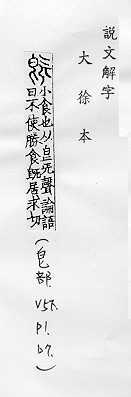 說文解字
大徐本
小食也从皀旡聲論語
曰不使勝食旣居未切
(皀部. V5下. p1. b7.)